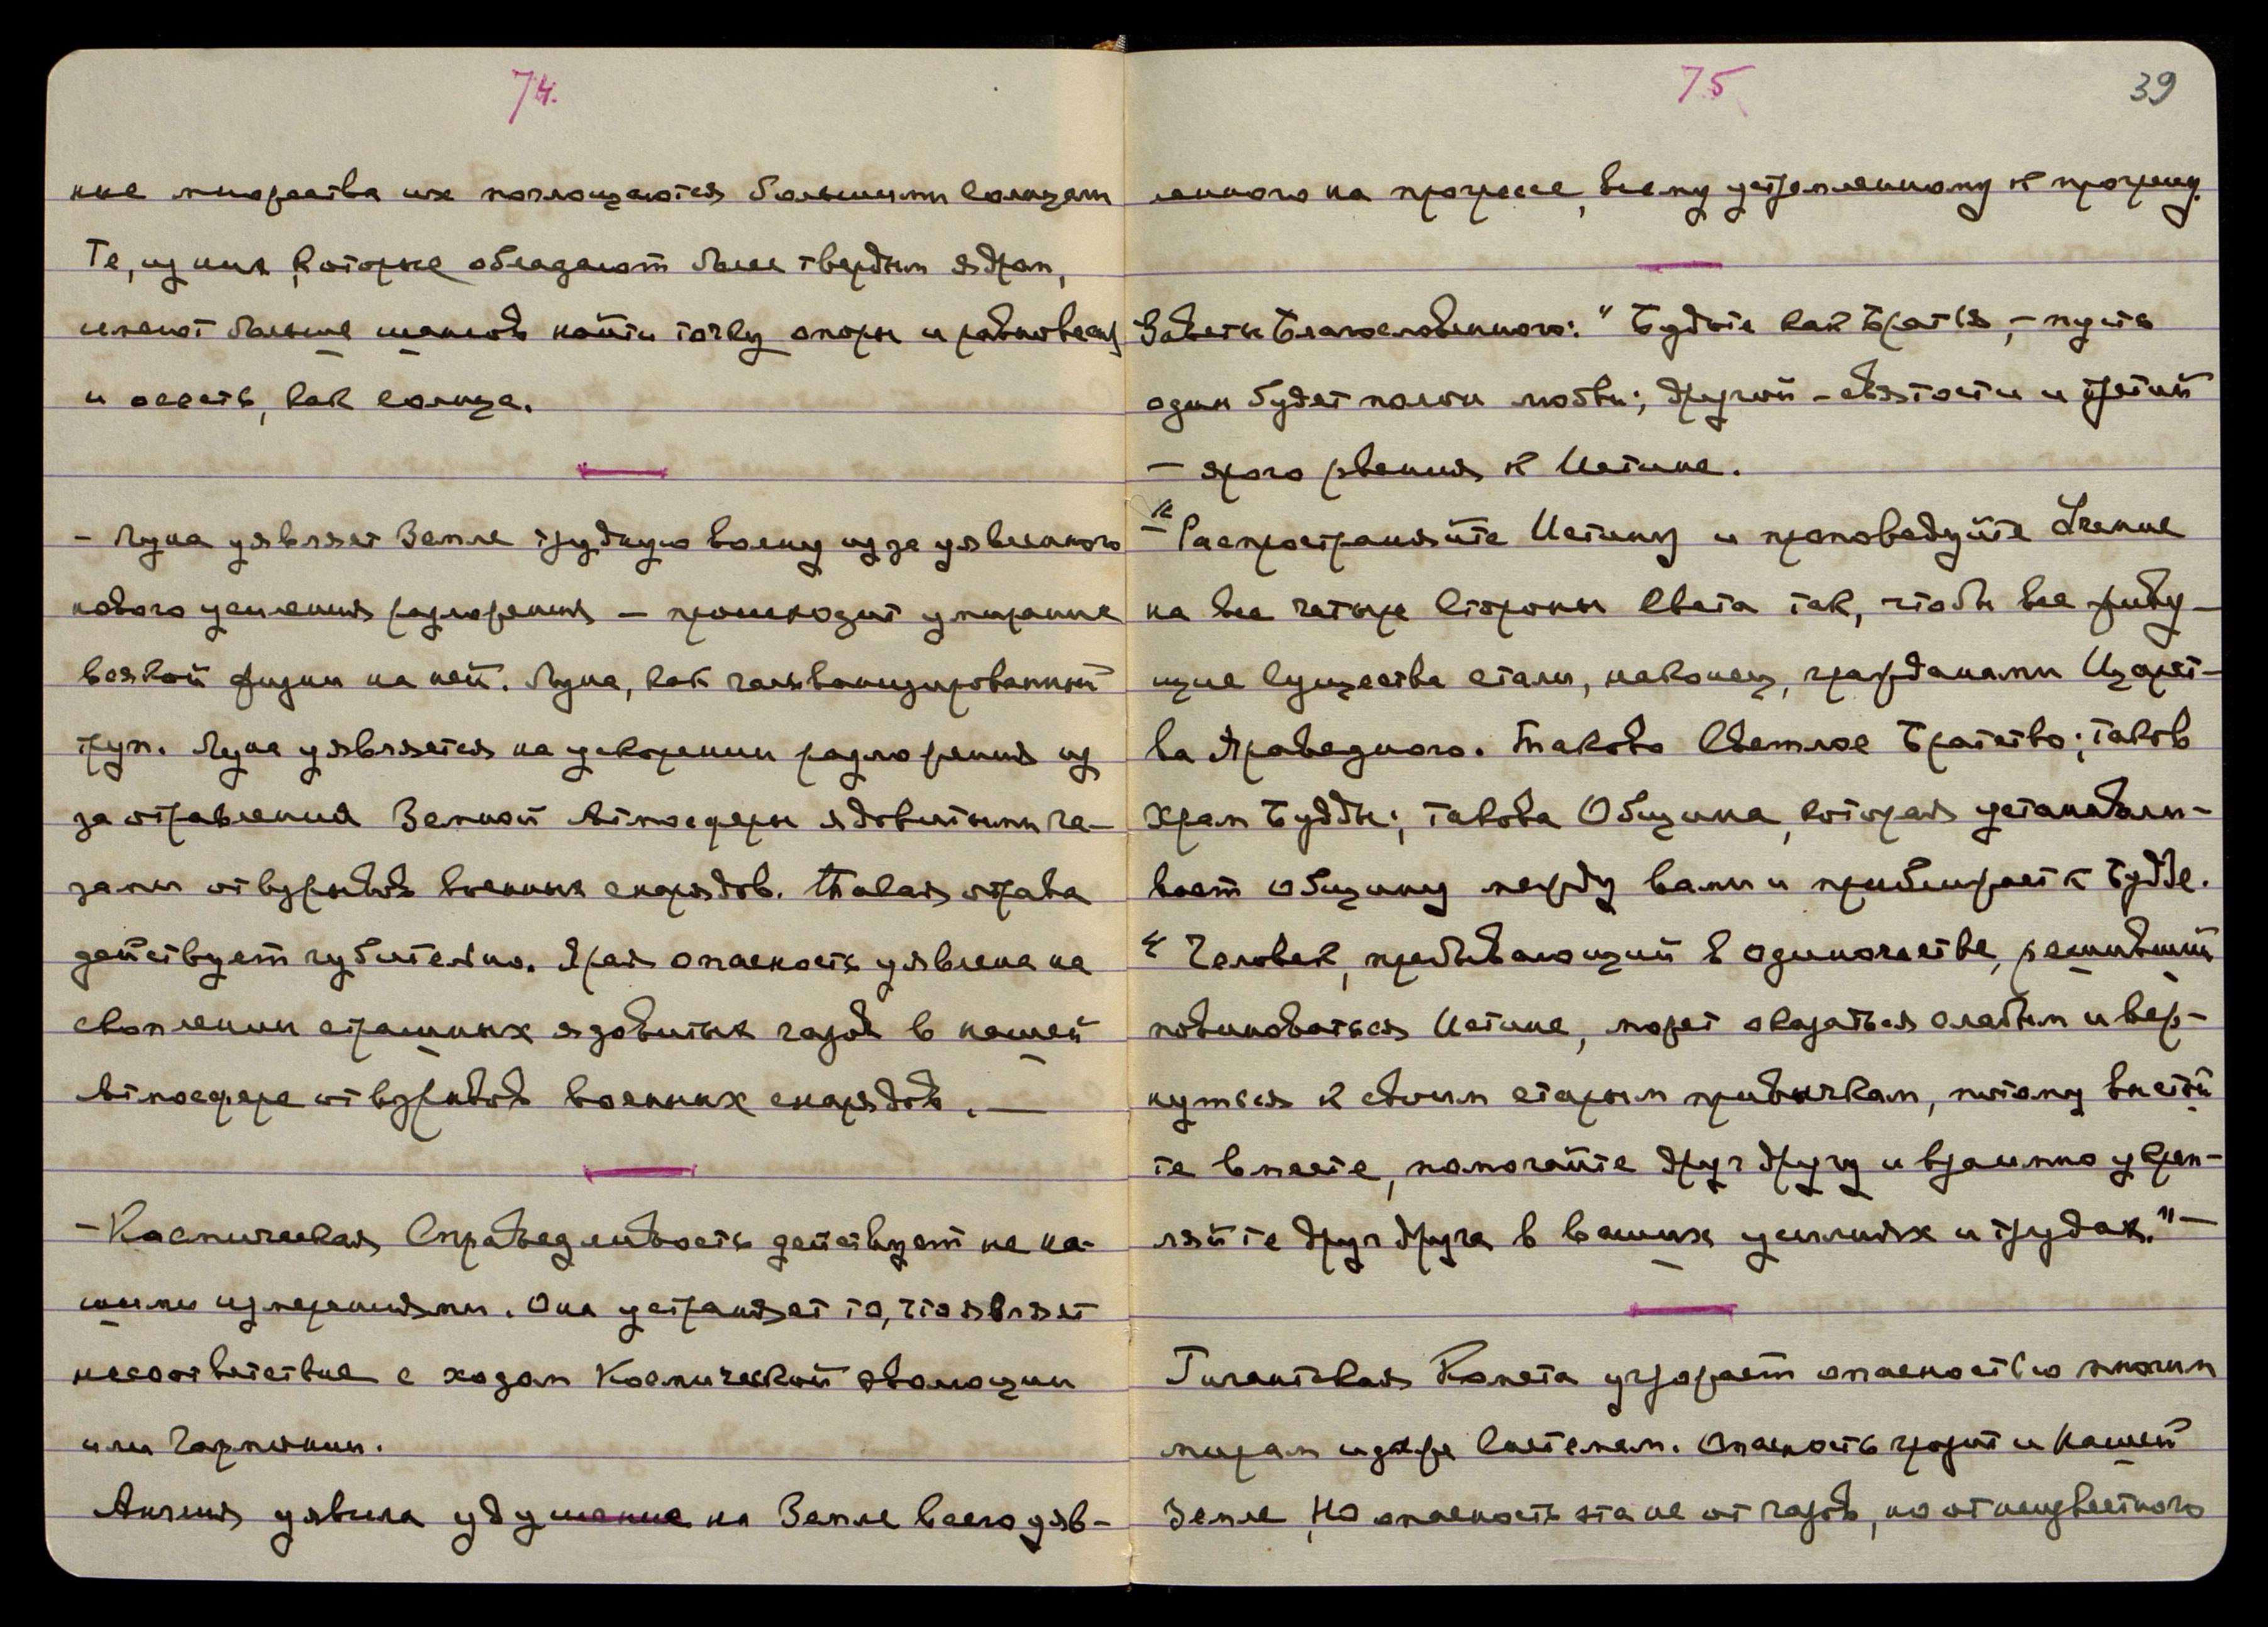 74.
ние множества их поглощаются большими солнцами
Те, из них, которые обладают более твердым ядром,
имеют больше шансов найти точку опоры и равновесия
и осесть, как солнце.
- Луна уявляет Земле трудную волну из за уявленного
нового усиления разложения — происходит умирание
всякой жизни на ней. Луна, как гальванизированный
труп. Луна уявляется на ускорении разложения из
за отравления Земной Атмосферы ядовитыми га-
зами от взрывов военных снарядов. Такая отрава
действует губительно. Ярая опасность уявлена на
скоплении страшных ядовитых газов в нашей
Атмосфере от взрывов военных снарядов. —
- Космическая Справедливость действует не на-
шими измерениями. Она устраняет то, что являет
несоответствие с ходом Космической эволюции
или Гармонии.
Англия уявила удушение на Земле всего уяв-
75
39
ленного на прогрессе, всему устремленному к прогрессу.
Заветы Благословенного: "Будьте как Братья, - пусть
один будет полон любви; другой - святости и третий
— ярого рвения к Истине.
"Распространяйте Истину и проповедуйте Учение
на все четыре Стороны Света так, чтобы все живу-
щие Существа стали, наконец, гражданами Царст-
ва Праведного. Таково Светлое Братство; таков
Храм Будды; такова Община, которая устанавли-
вает общину между вами и приближает к Будде.
"Человек, пребывающий в одиночестве, решивший
повиноваться Истине, может оказаться слабым и вер-
нуться к своим старым привычкам, потому вы стой
те вместе, помогайте друг другу и взаимно укреп-
ляйте друг друга в ваших усилиях и трудах." —
Гигантская Комета угрожает опасностью многим
мирам и даже Системам. Опасность грозит и нашей
Земле, но опасность эта не от газов, но от неизвестного